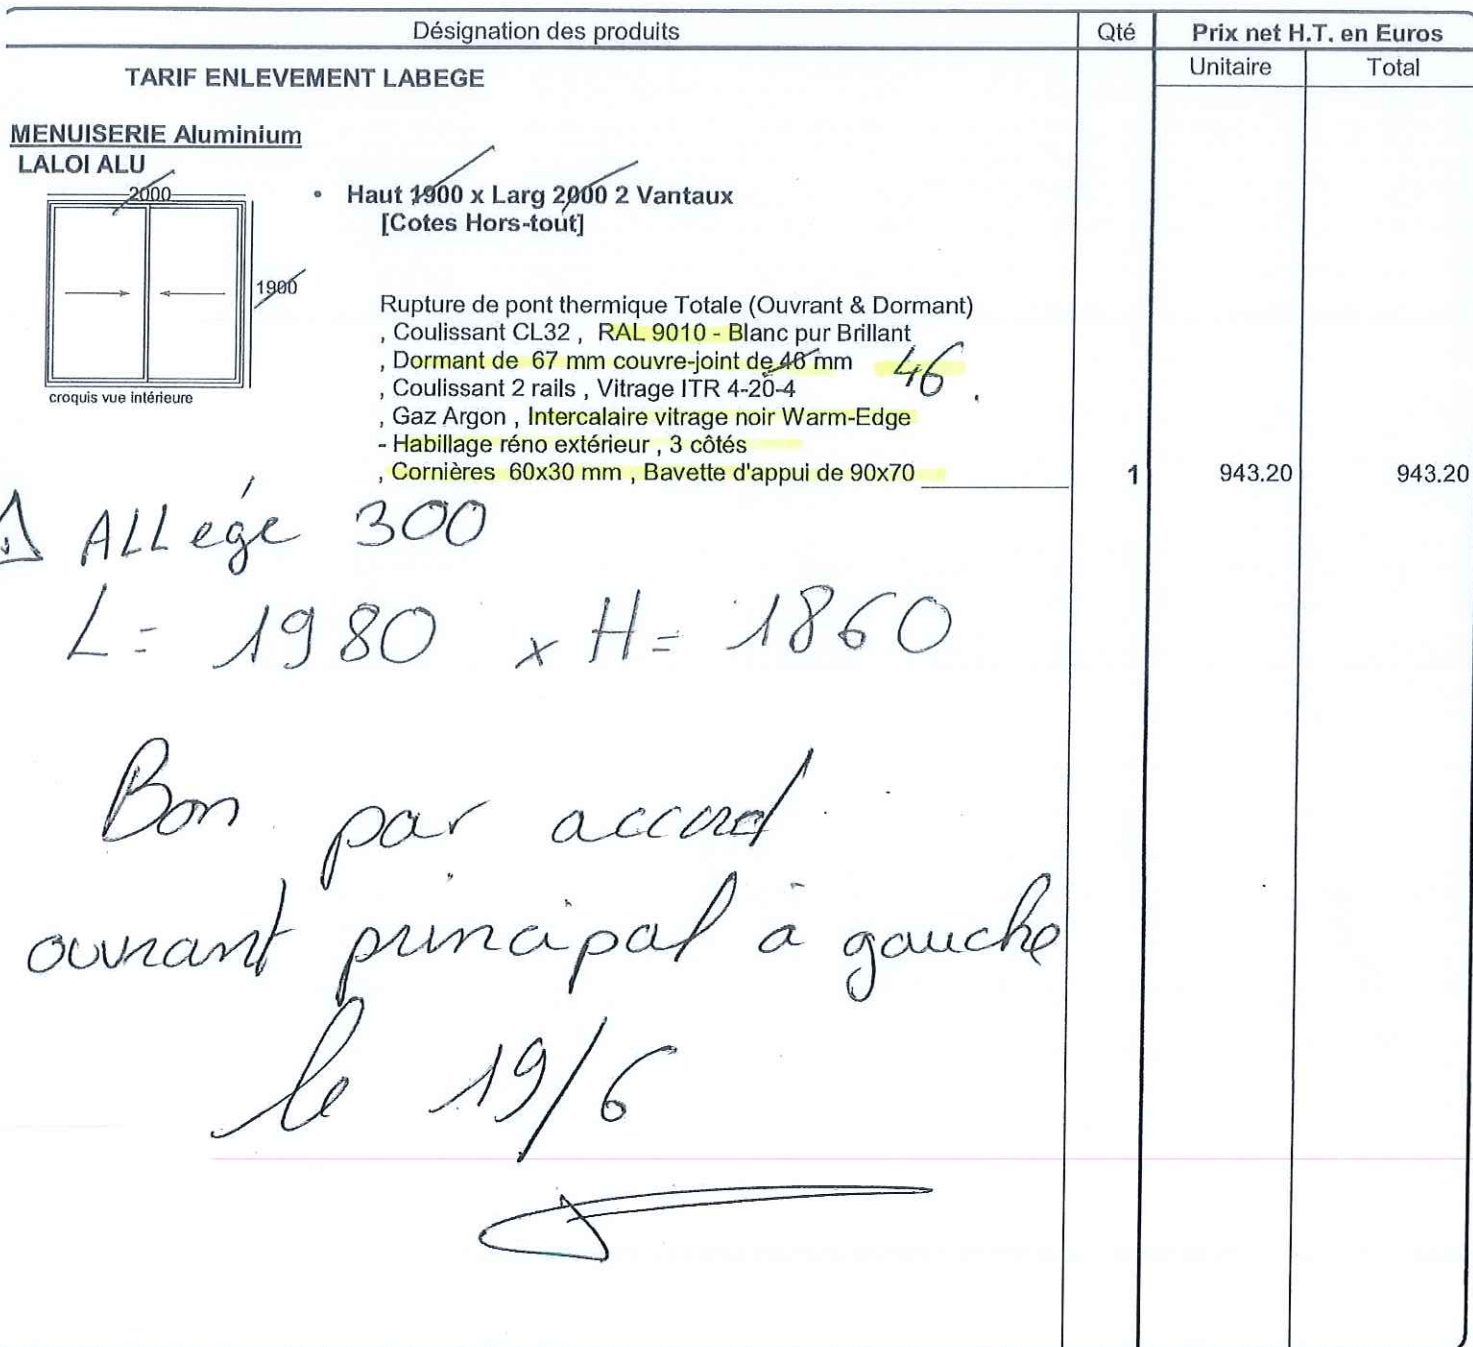 Désignation des produits Qté Prix net H.T. en Euros
Unitaire Total
TARIF ENLEVEMENT LABEGE
MENUISERIE Aluminium
LALOI ALU
2000
1900
croquis vue intérieure
• Haut 1900 x Larg 2000 2 Vantaux
[Cotes Hors-tout]
Rupture de pont thermique Totale (Ouvrant & Dormant)
, Coulissant CL32 , RAL 9010 - Blanc pur Brillant
, Dormant de 67 mm couvre-joint de 46 mm 46
, Coulissant 2 rails , Vitrage ITR 4-20-4
, Gaz Argon , Intercalaire vitrage noir Warm-Edge
- Habillage réno extérieur , 3 côtés
, Cornières 60x30 mm , Bavette d'appui de 90x70 1 943.20 943.20
⚠ ALLége 300
L= 1980 x H= 1860
Bon par accord
ouvrant principal à gauche
le 19/6